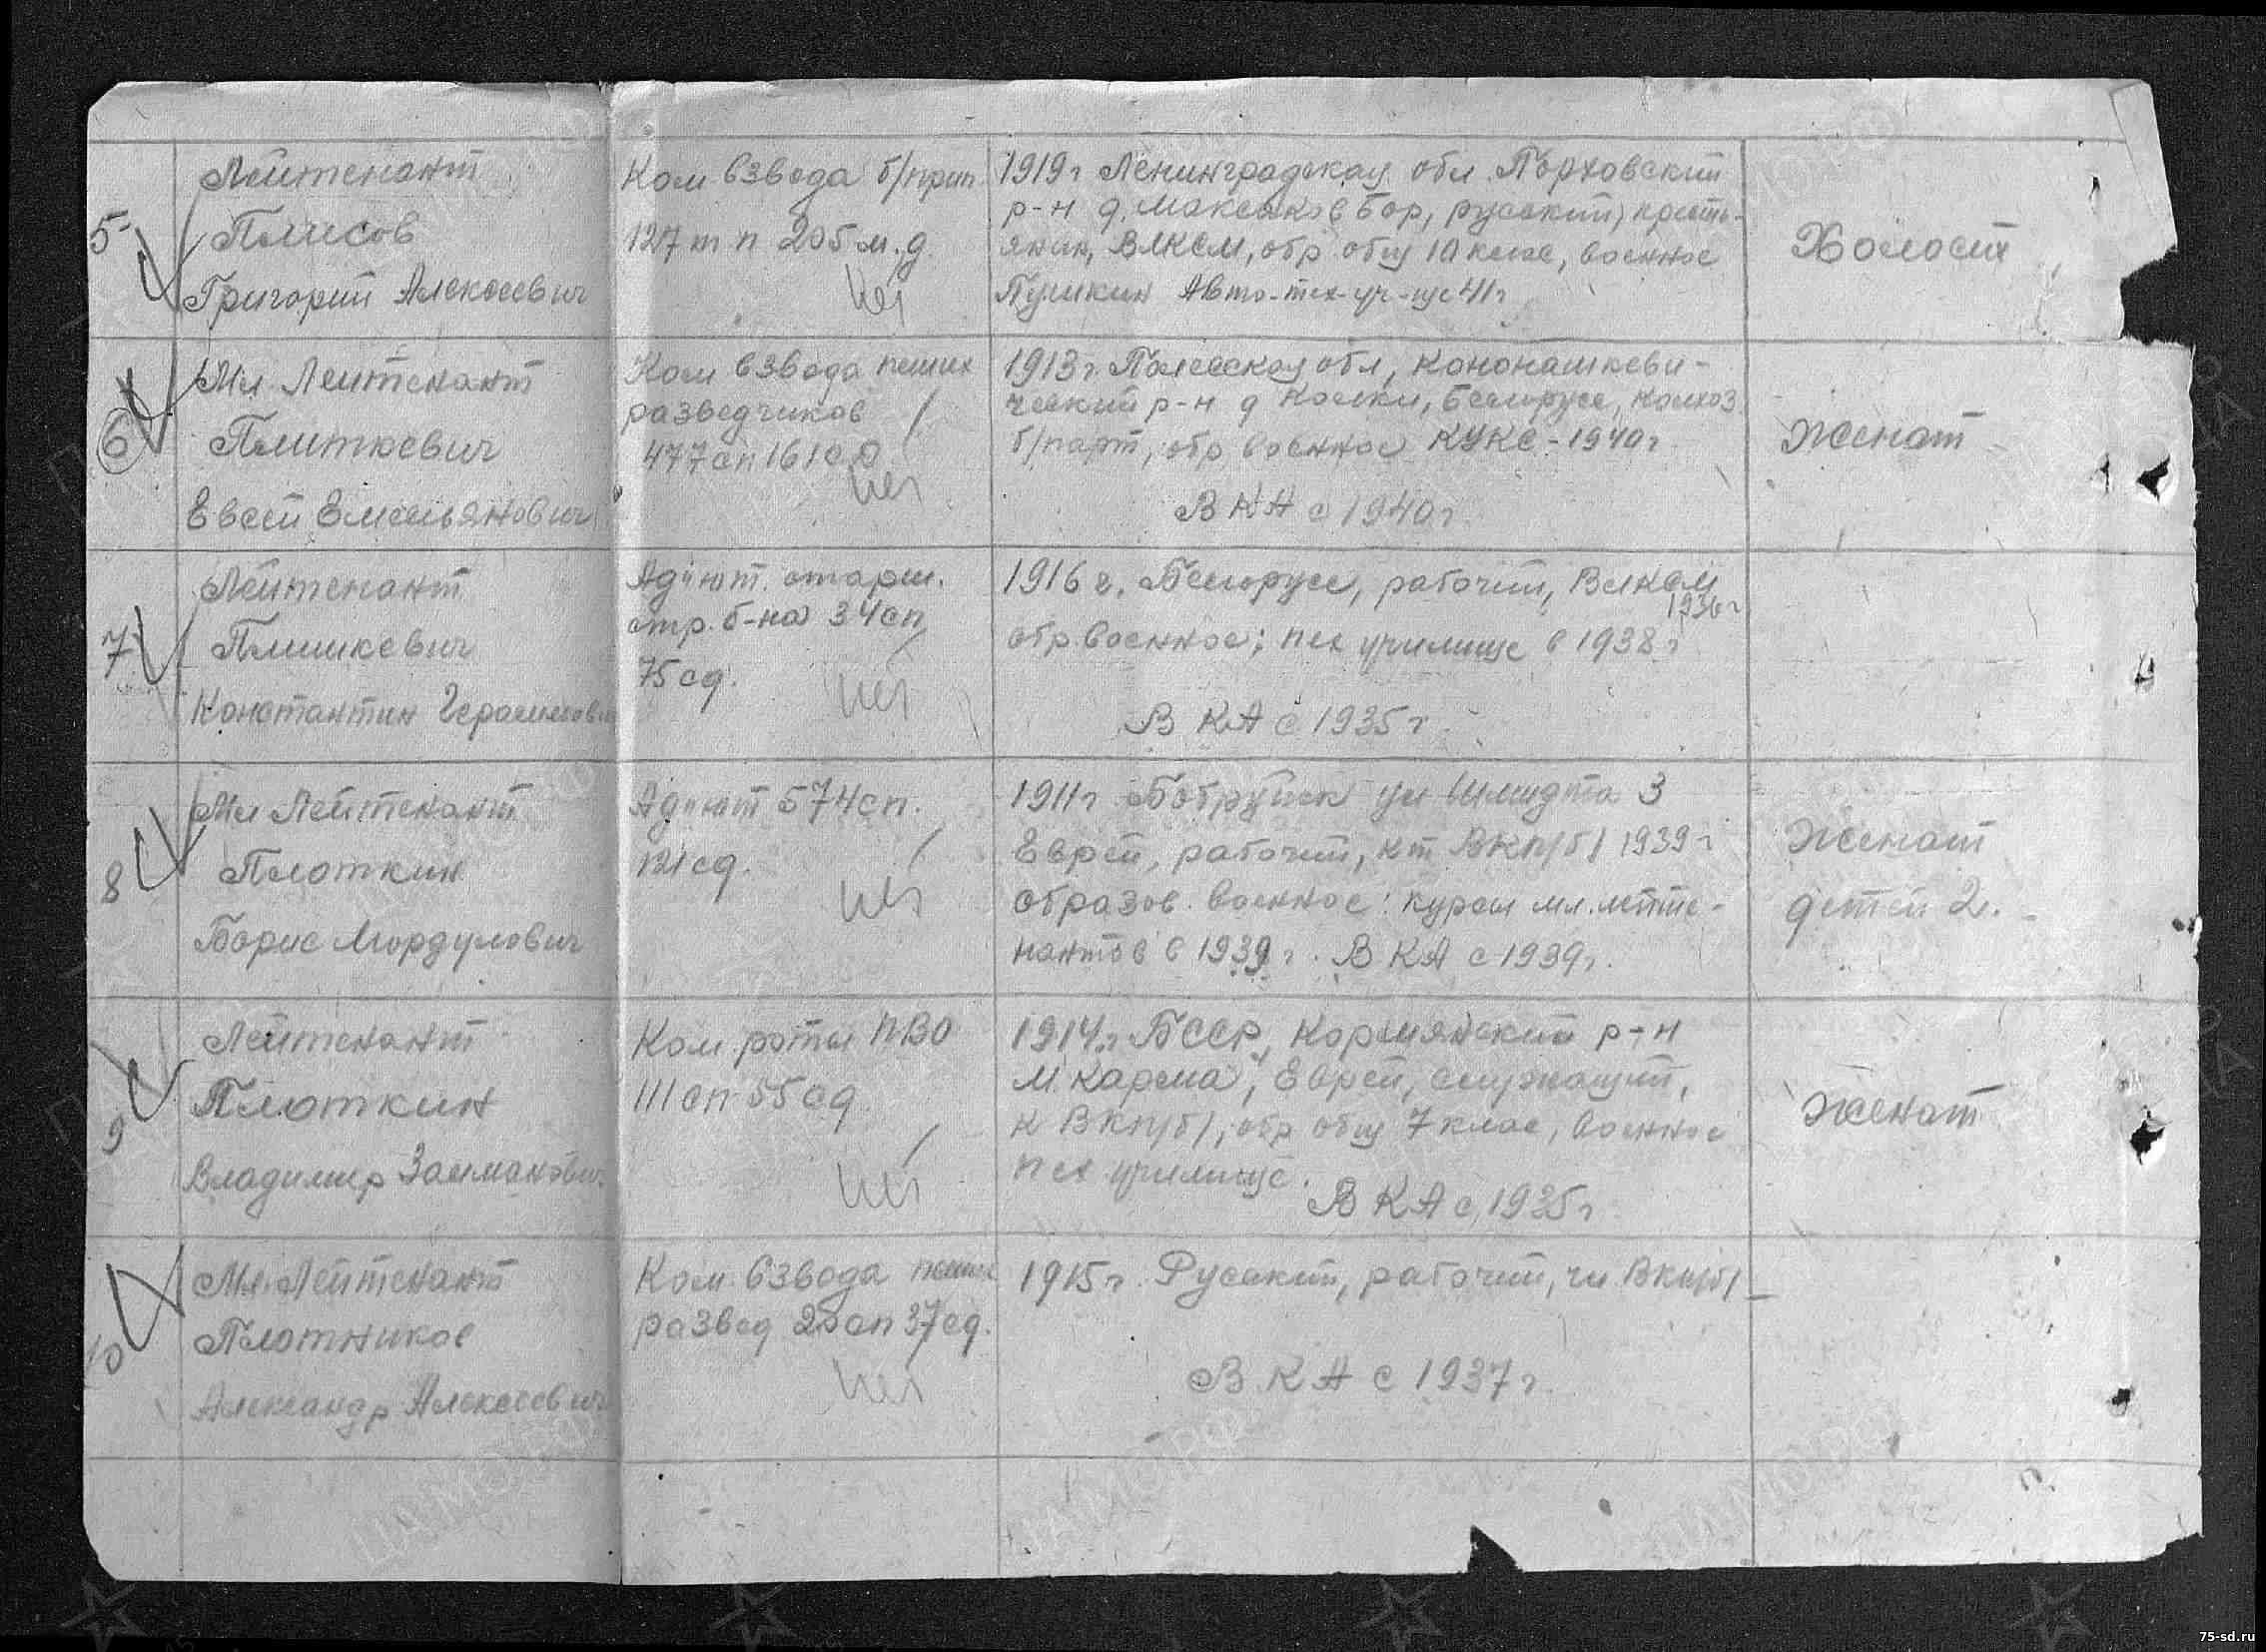 5
Лейтенант
Плисов
Григорий Алексеевич
Ком взвода б/прип
127 т п 205 м.д.
нет
1919г Ленинградская обл. Порховский
р-н д. Бор, русский, крестья-
янин, ВЛКСМ, обр общ 10 клас, военное
Пушкин Авто-тех-уч-ще 41г
Холост
6
Мл. Лейтенант
Плиткевич
Евсей Емельянович
Ком взвода пеших
разведчиков
477сп 161сд
нет
1913г. Полесская обл,
ческий р-н д Колки, Белорусс, колхоз
б/парт, обр военное КУКС - 1940г
В КА с 1940г.
Женат
7
Лейтенант
Плишкевич
Константин Герасимович
Адъют. старш.
стр. б-на 34сп
75сд.
нет
1916 г. Белорусс, рабочий, ВЛКСМ
1936г
обр. военное; пех училище в 1938г
В КА с 1935г.
8
Мл Лейтенант
Плоткин
Борис Мордухович
Адъют 574сп.
121сд.
нет
1911г Бобруйск ул Шмидта 3
Еврей, рабочий, кт ВКП/б/ 1939г
образов. военное: курсы мл. лейте-
нантов в 1939г. В КА с 1939г.
Женат
детей 2.
9
Лейтенант
Плоткин
Владимир Залманович
Ком. роты ПВО
111сп 55сд
нет
1914г БССР, Кормянский р-н
м. Карма, Еврей, служащий,
к ВКП/б/, обр общ 7 клас, военное
пех училище.
В КА с 1935г
Женат
10
Мл. Лейтенант
Плотников
Александр Алексеевич
Ком. взвода пеших
развед 20сп 37сд.
нет
1915г. Русский, рабочий, чл ВКП/б/
В КА с 1937г.
75-sd.ru